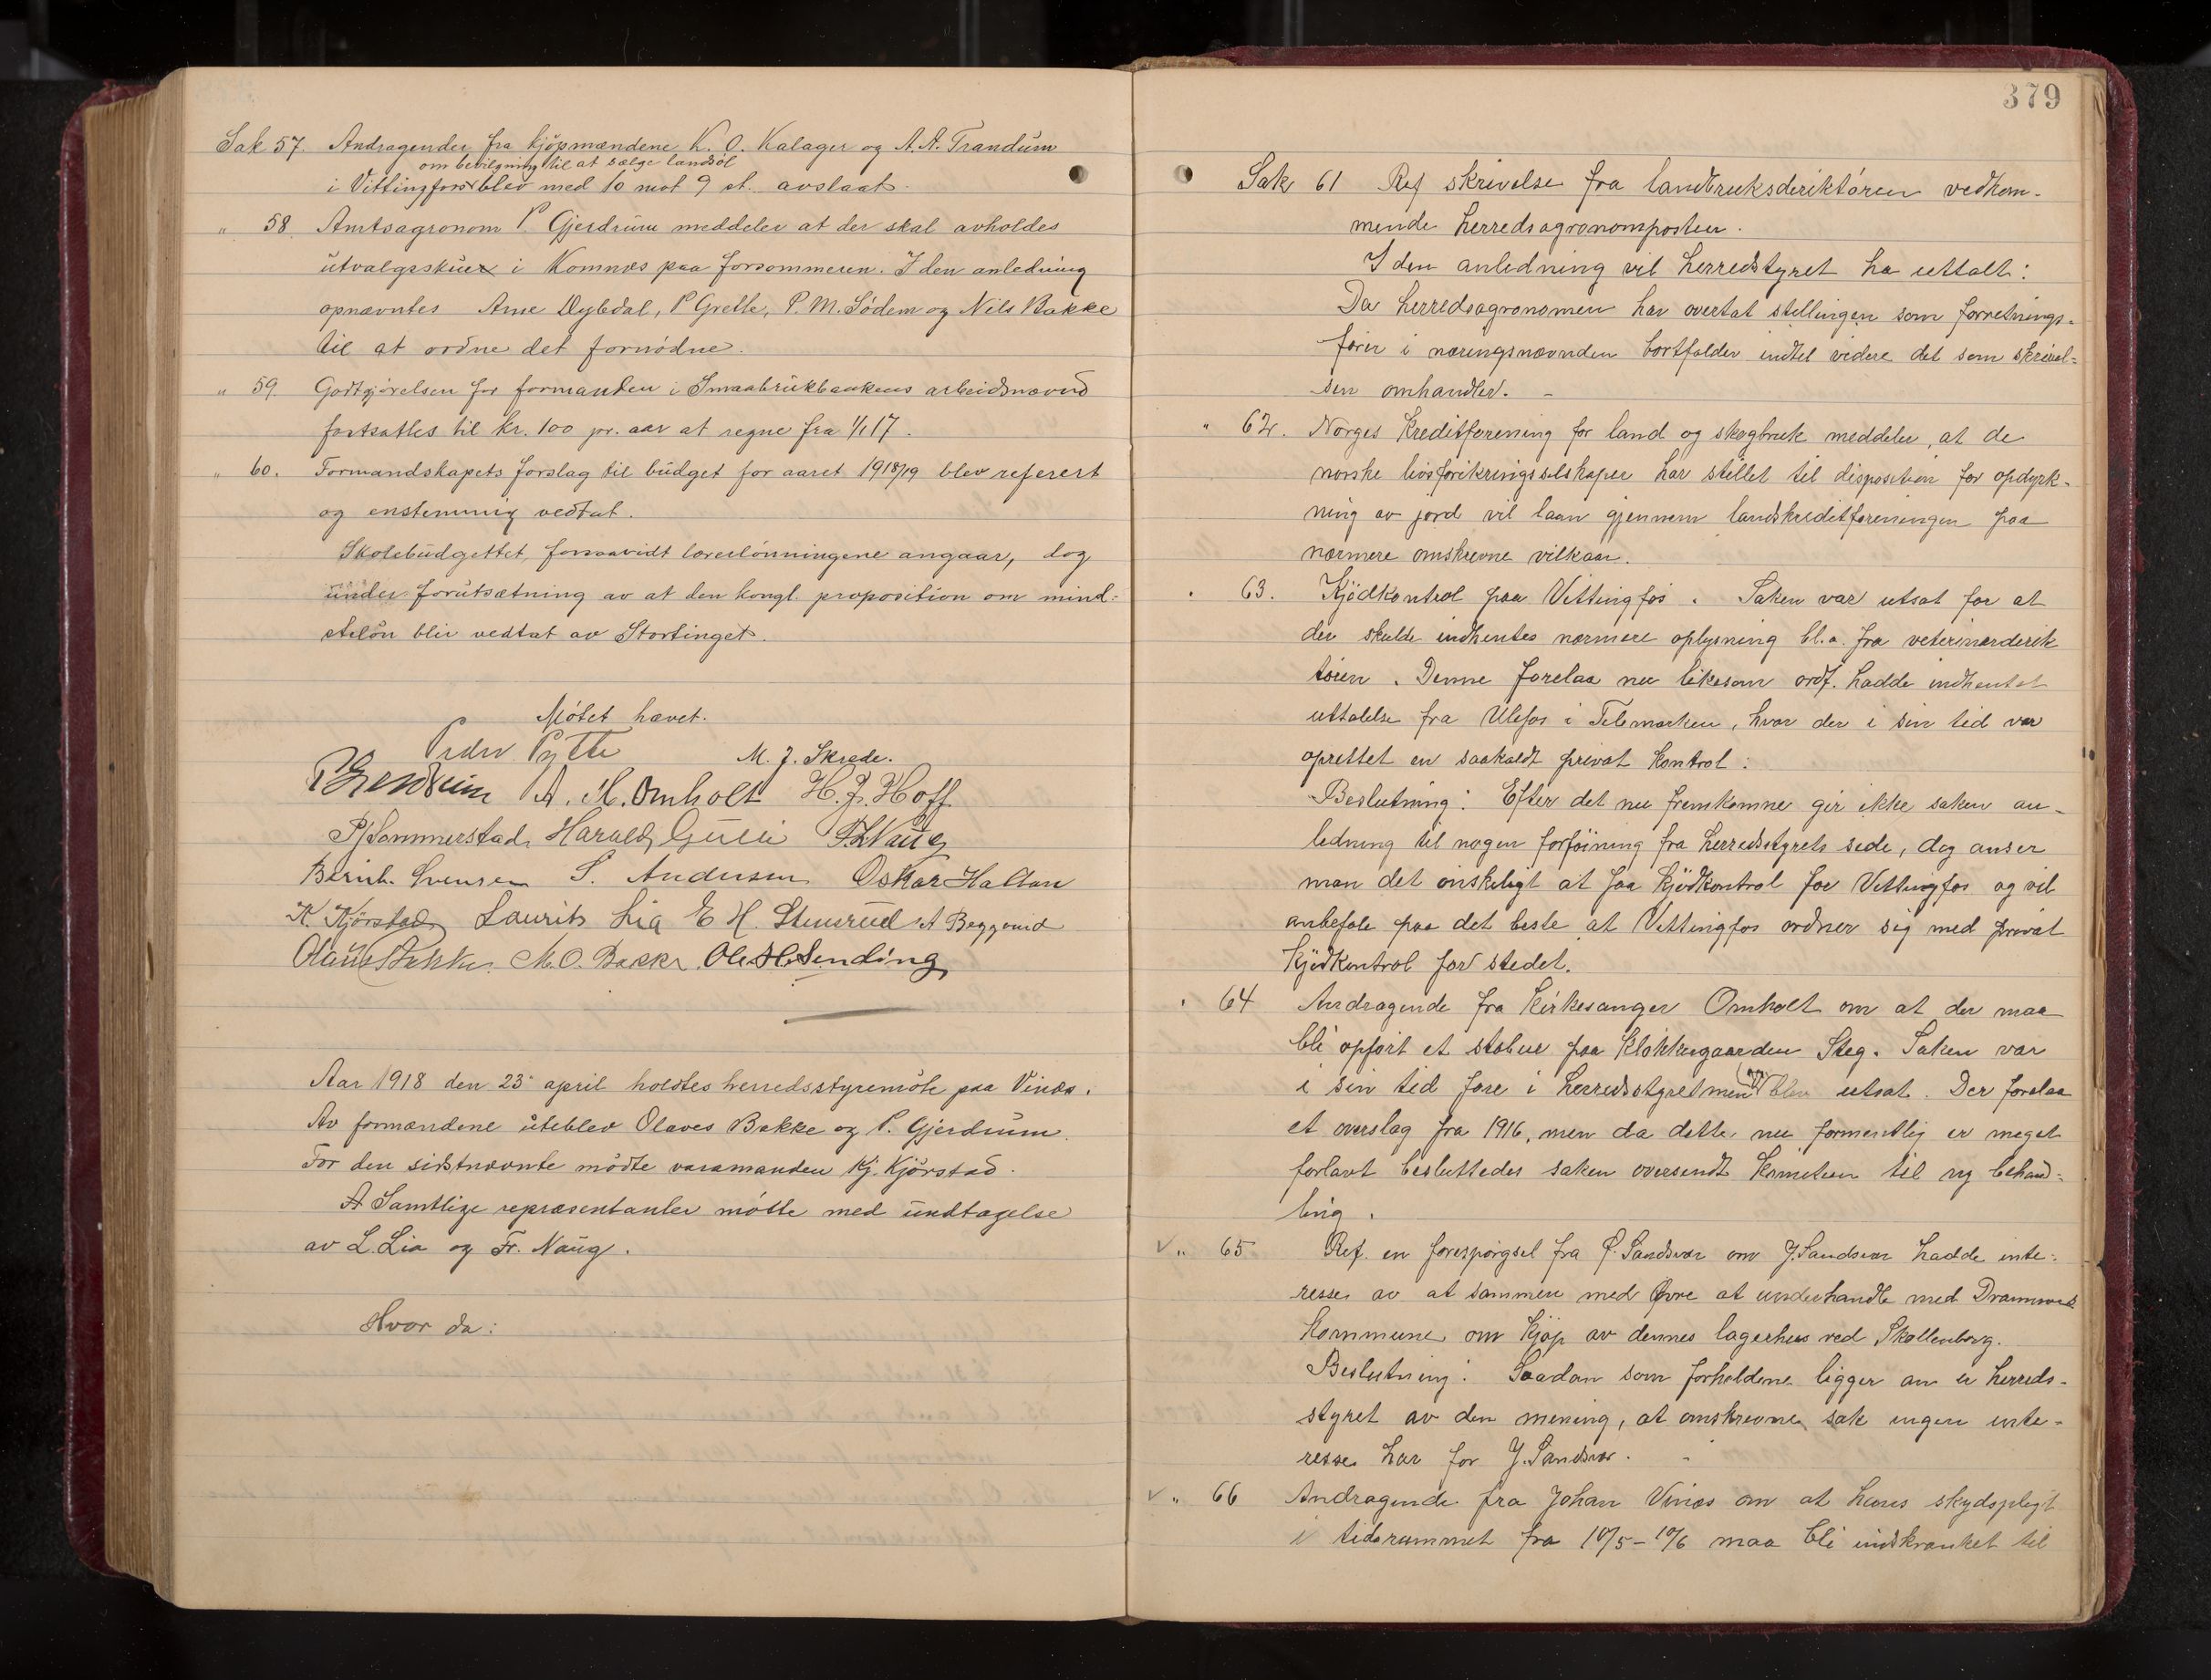 Sak 57. Andragender fra kjøpmændene K. O. Kalager og A. A. Trandum
om bevilgning til at sælge landsøl
i Vittingfoss blev med 10 mot 9 st. avslaat.
" 58. Amtsagronom P. Gjerdrum meddeler at der skal avholdes
utvalgsskuer i Komnes paa forsommeren. I den anledning
opnævntes Arne Dybdal, P Grette, P. M. Sødem og Nils Bakke
til at ordne det fornødne.
" 59. Godtgjørelsen for formanden i Smaabrukbankens arbeidsnævnd
fastsattes til kr. 100 pr. aar at regne fra 1/1 17.
" 60. Formandskapets forslag til budget for aaret 1918/19 blev referert
og enstemmig vedtat.
Skolebudgettet, forsaavidt lærerlønningene angaar, dog
under forutsætning av at den kongl. proposition om mind-
steløn blir vedtat av Stortinget.
Møtet hævet.
Peder Pytte M. J. Skrede.
P Gjerdrum A. H. Omholt H. J. Hoff
P Sommerstad Harald Gulli F. Naug
Bernh. Svensen S. Andersen Oskar Haltan
K. Kjørstad Laurits Lia E H. Stensrud A Beggerud
Olaus Bakke. M. O. Bakke. Ole H. Sending
Aar 1918 den 23 april holdtes herredsstyremøte paa Vinæs.
Av formændene uteblev Olaves Bakke og P. Gjerdrum.
For den sidstnævnte mødte varamanden Kj. Kjørstad.
A Samtlige repræsentanter møtte med undtagelse
av L. Lia og Fr. Naug.
Hvor da:
379
Sak 61 Ref skrivelse fra landbruksdiriktøren vedkom-
mende herredsagronomposten.
I den anledning vil herredstyret ha uttalt:
Da herredsagronomen har overtat stillingen som forretnings-
fører i næringsnævnden bortfalder indtil videre det som skrivel-
sen omhandler. -
" 62. Norges Kreditforening for land og skogbruk meddeler, at de
norske livsforsikringsselskaper har stillet til disposition for opdyrk-
ning av jord vil laan gjennem landskreditforeningen paa
nærmere omskrevne vilkaar.
" 63. Kjødkontrol paa Vittingfos. Saken var utsat for at
der skulde indhentes nærmere oplysning bl.a. fra veterinærdirik
tøren. Denne forelaa nu likesom ordf. hadde indhentet
uttalelse fra Ulefos i Telemarken, hvor der i sin tid var
oprettet en saakaldt privat kontrol:
Beslutning: Efter det nu fremkomne gir ikke saken an-
ledning til nogen forføining fra herredsstyrets side, dog anser
man det ønskeligt at faa kjødkontrol for Vittingfos og vil
anbefale paa det beste at Vittingfos ordner sig med privat
kjødkontrol for stedet.
" 64 Andragende fra Kirkesanger Omholt om at der maa
bli opført et stabur paa Klokkergaarden Steg. Saken var
i sin tid fore i herredsstyret men blev utsat. Der forelaa
et overslag fra 1916, men da dette nu formentlig er meget
forlavt besluttedes saken oversendt komiteen til ny behand-
ling.
" 65 Ref. en forespørgsel fra Ø. Sandsvær om Y. Sandsvær hadde inte-
resse av at sammen med Øvre at underhandle med Drammens
kommune om kjøp av dennes lagerhus ved Skollenborg.
Beslutning: Saadan som forholdene ligger an er herreds-
styret av den mening, at omskrevne sak ingen inte-
resse har for Y. Sandsvær. -
" 66 Andragende fra Johan Vinæs om at hans skydspligt
i tidsrummet fra 10/5 - 10/6 maa bli indskrænket til